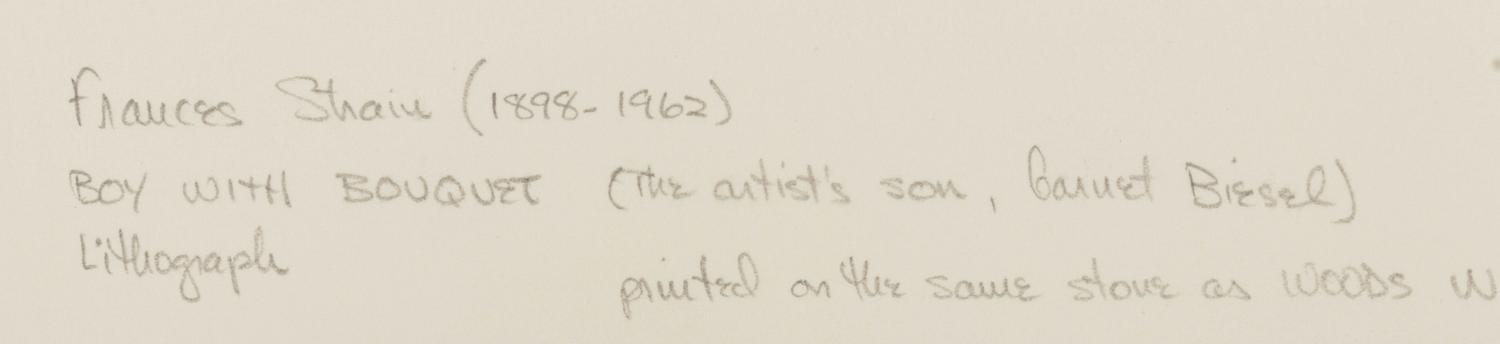 Frances Strain (1898-1962)
BOY WITH BOUQUET (The artist's son, Garnet Biesel)
Lithograph
printed on the same stone as WOODS W